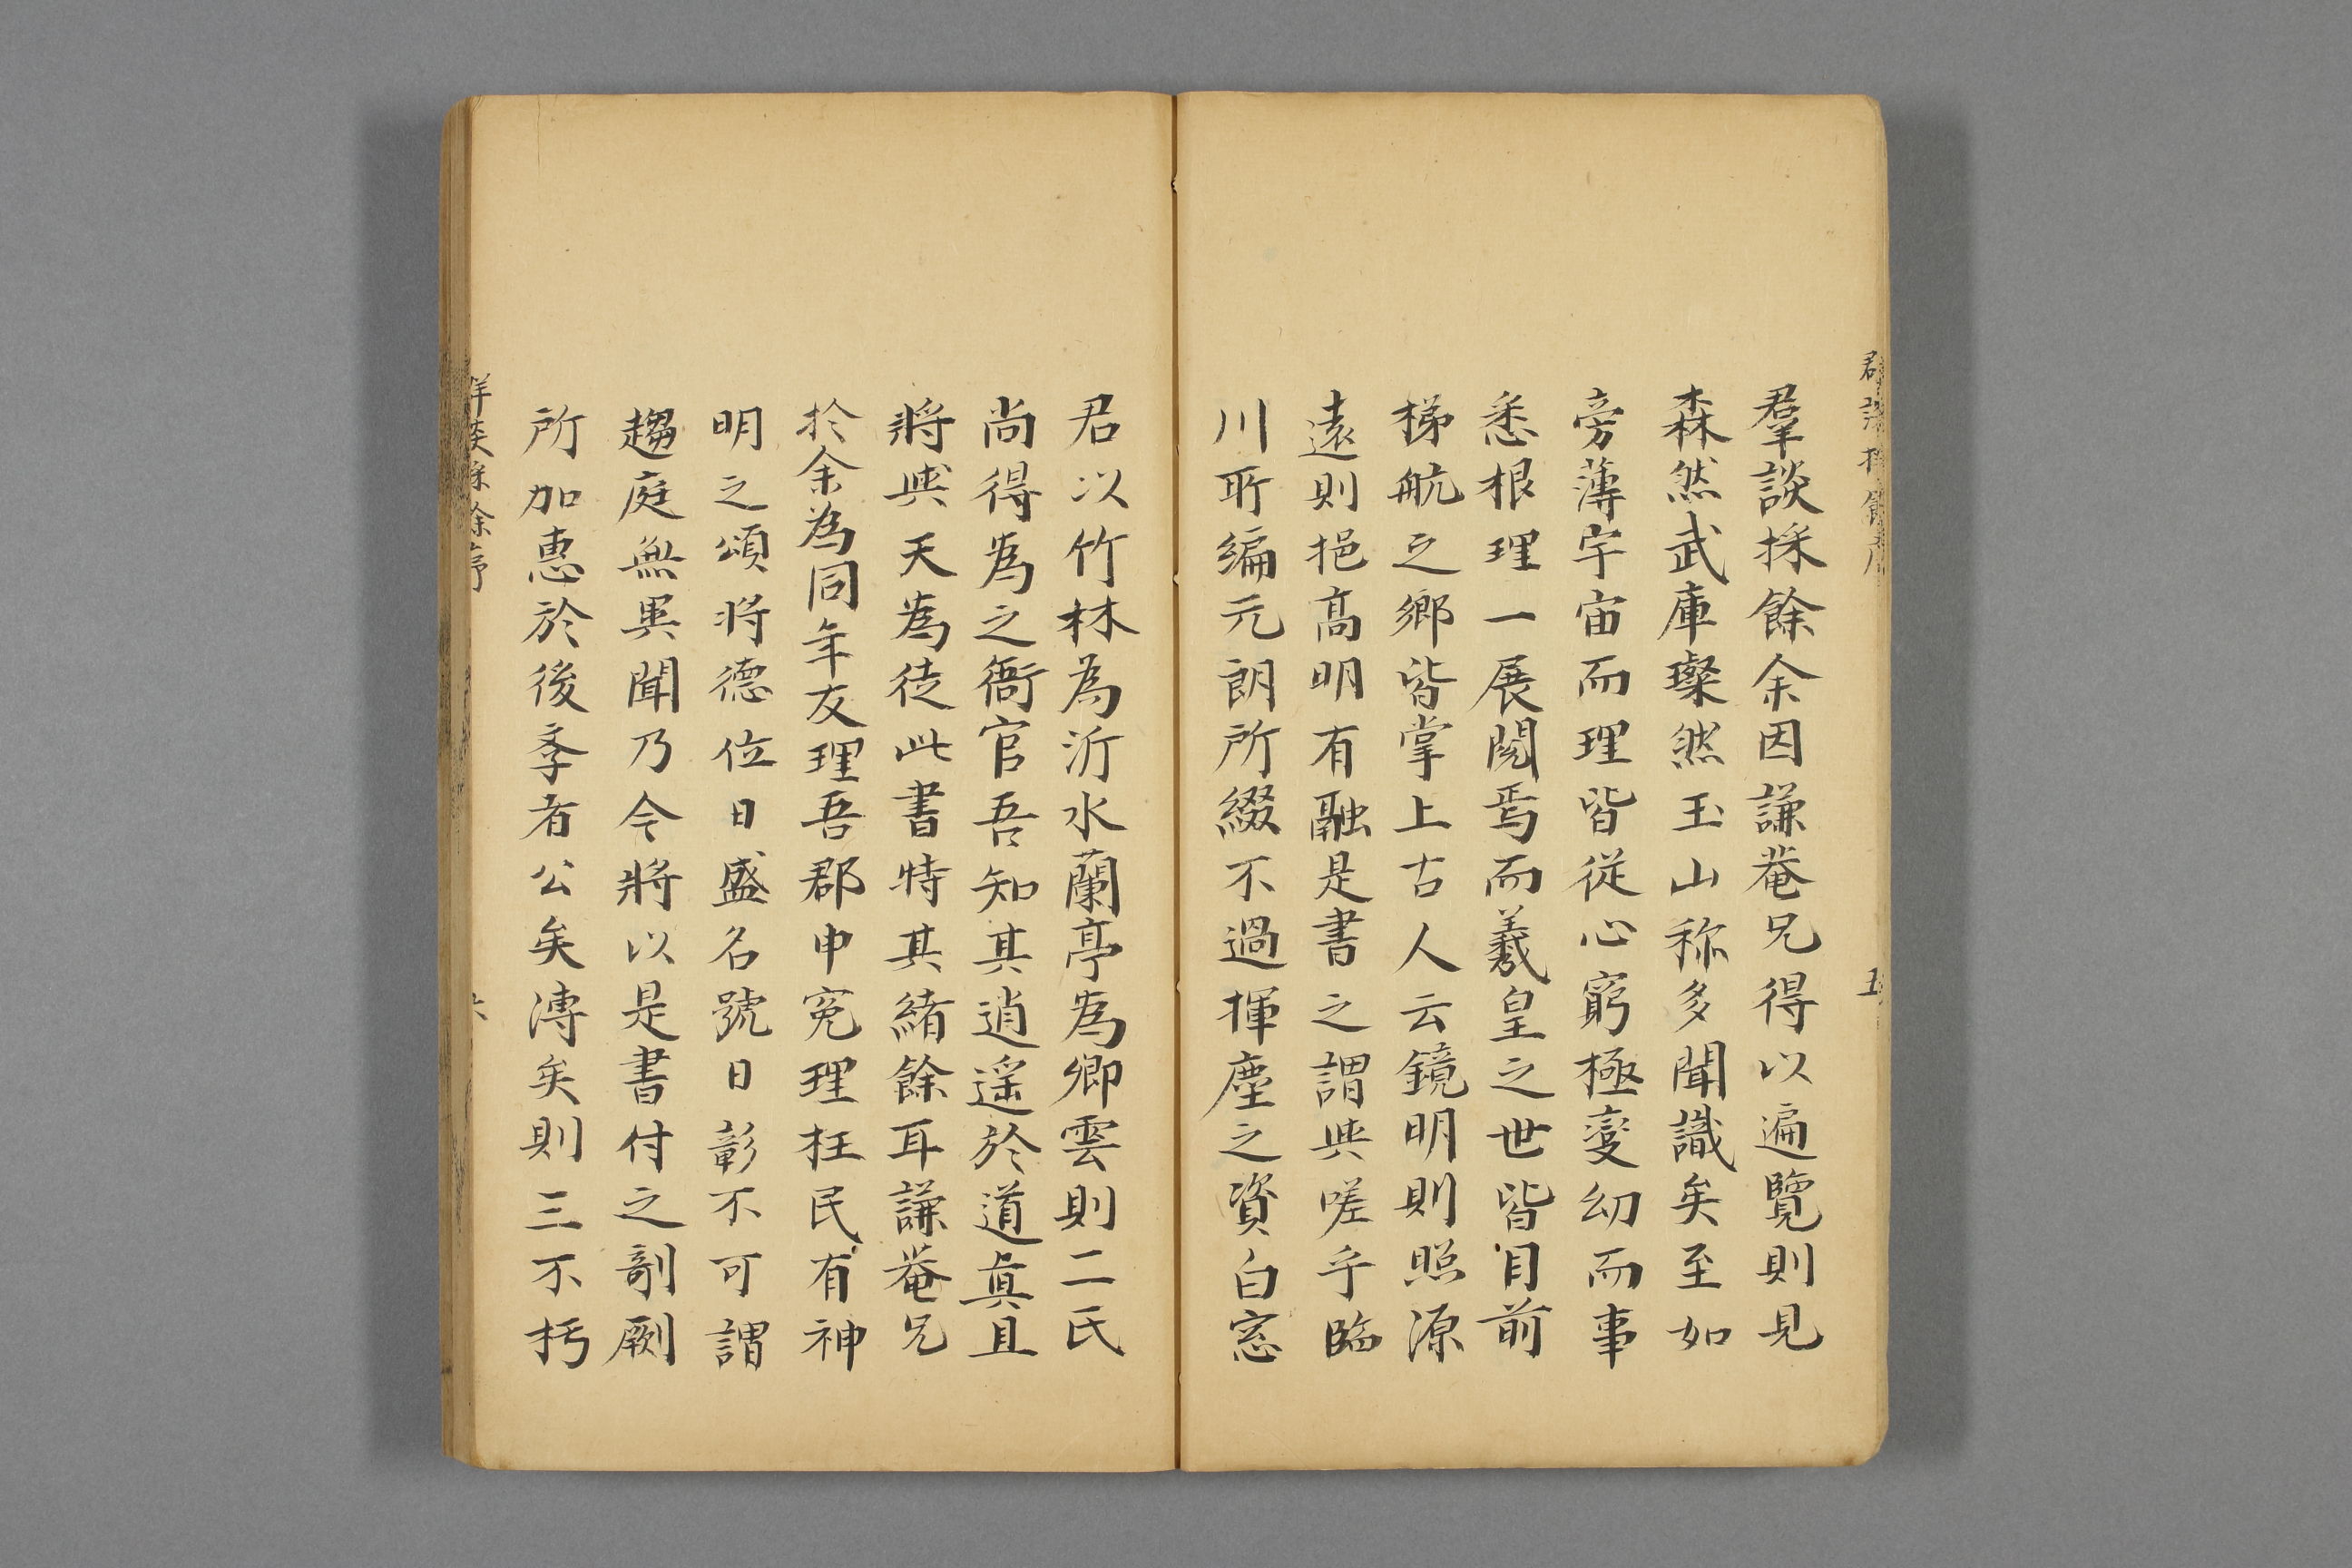 羣談採餘序
五
羣談採餘余因謙菴兄得以遍覽則見
森然武庫璨然玉山称多聞識矣至如
旁薄宇宙而理皆從心窮極变幻而事
悉根理一展閱焉而羲皇之世皆目前
梯航之鄉皆掌上古人云鏡明則照源
遠則挹高明有融是書之謂與嗟乎臨
川所編元朗所綴不過揮塵之資白窓
君以竹林為沂水蘭亭為卿雲則二氏
尚得為之衙官吾知其逍遥於道真且
將與天為徒此書特其緒餘耳謙菴兄
於余為同年友理吾郡申寃理枉民有神
明之頌将德位日盛名號日彰不可謂
趨庭無異聞乃今將以是書付之剞劂
所加惠於後季者公矣溥矣則三不朽
群談採餘序
六